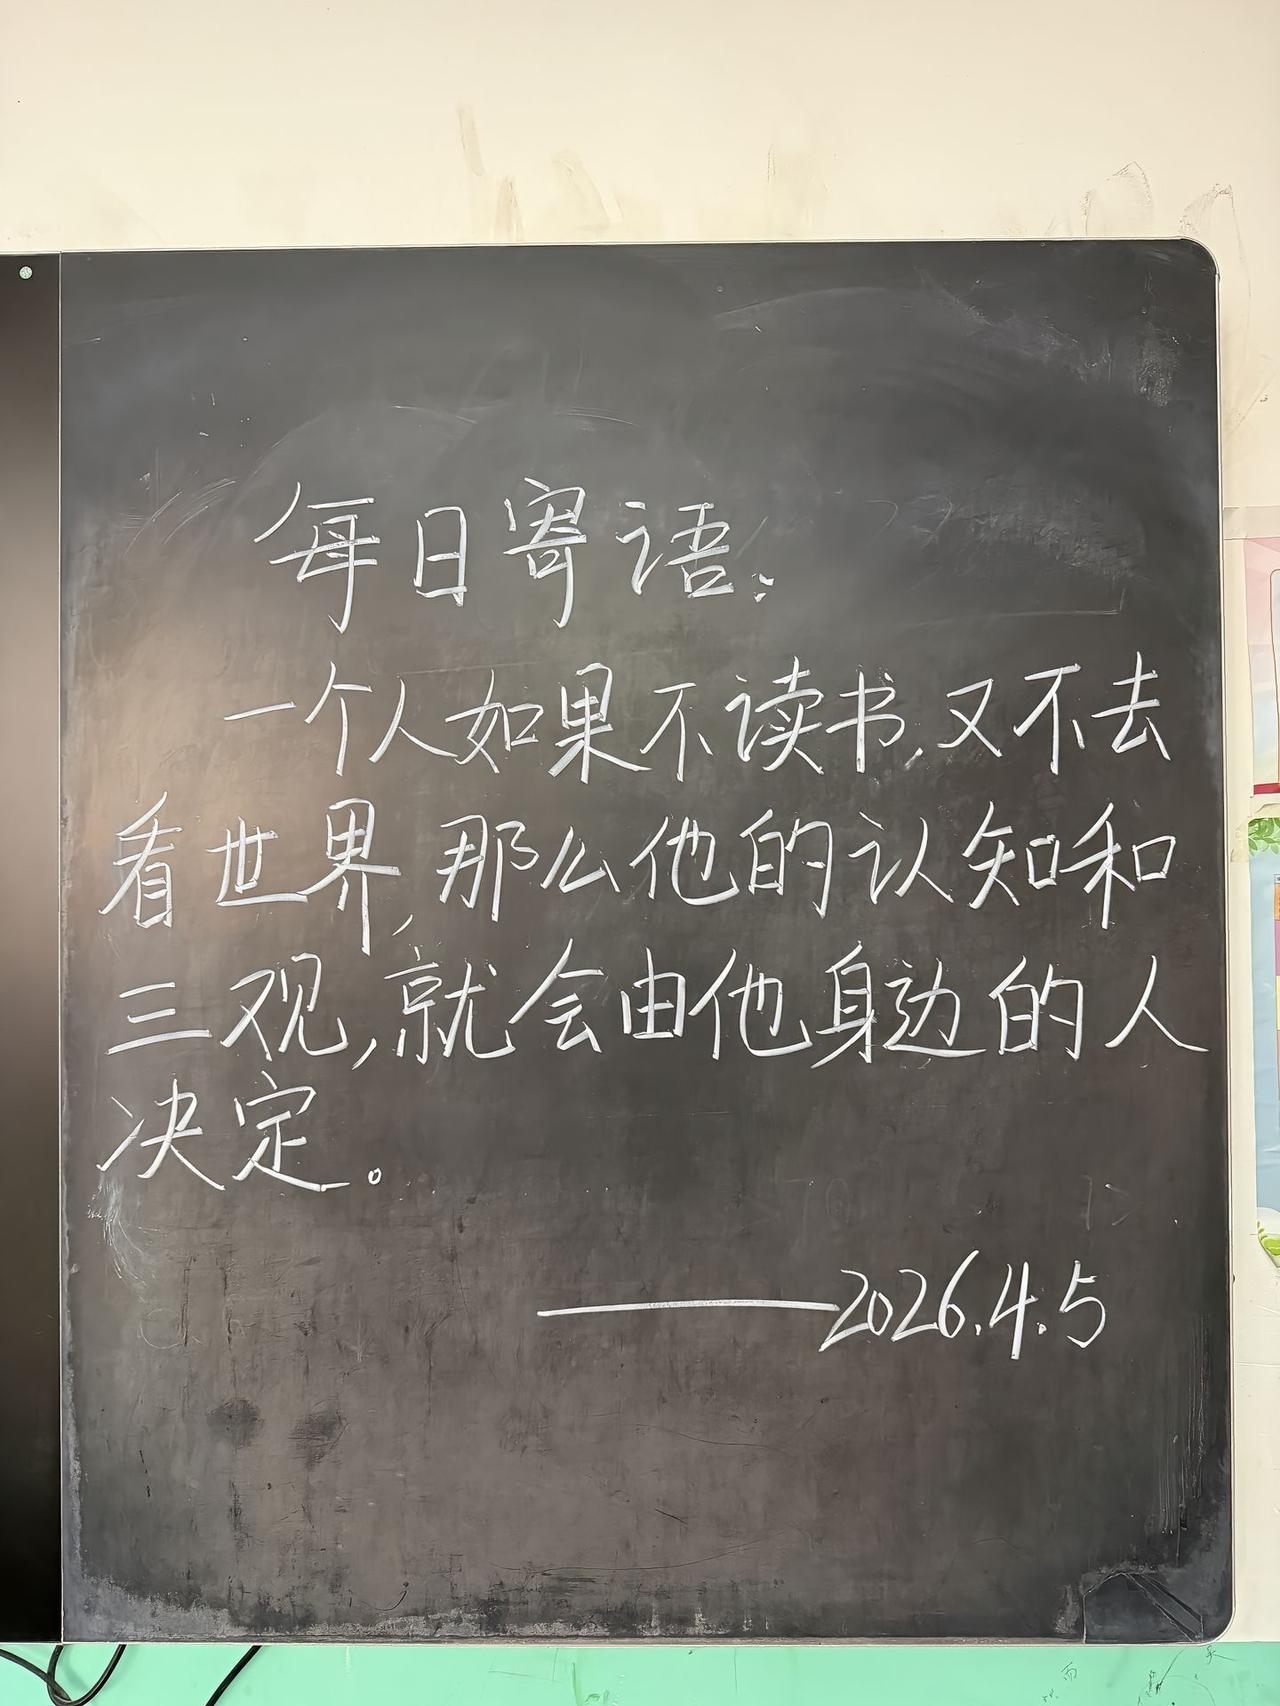 每日寄语:
一个人如果不读书,又不去
看世界,那么他的认知和
三观,就会由他身边的人
决定。
——2026.4.5